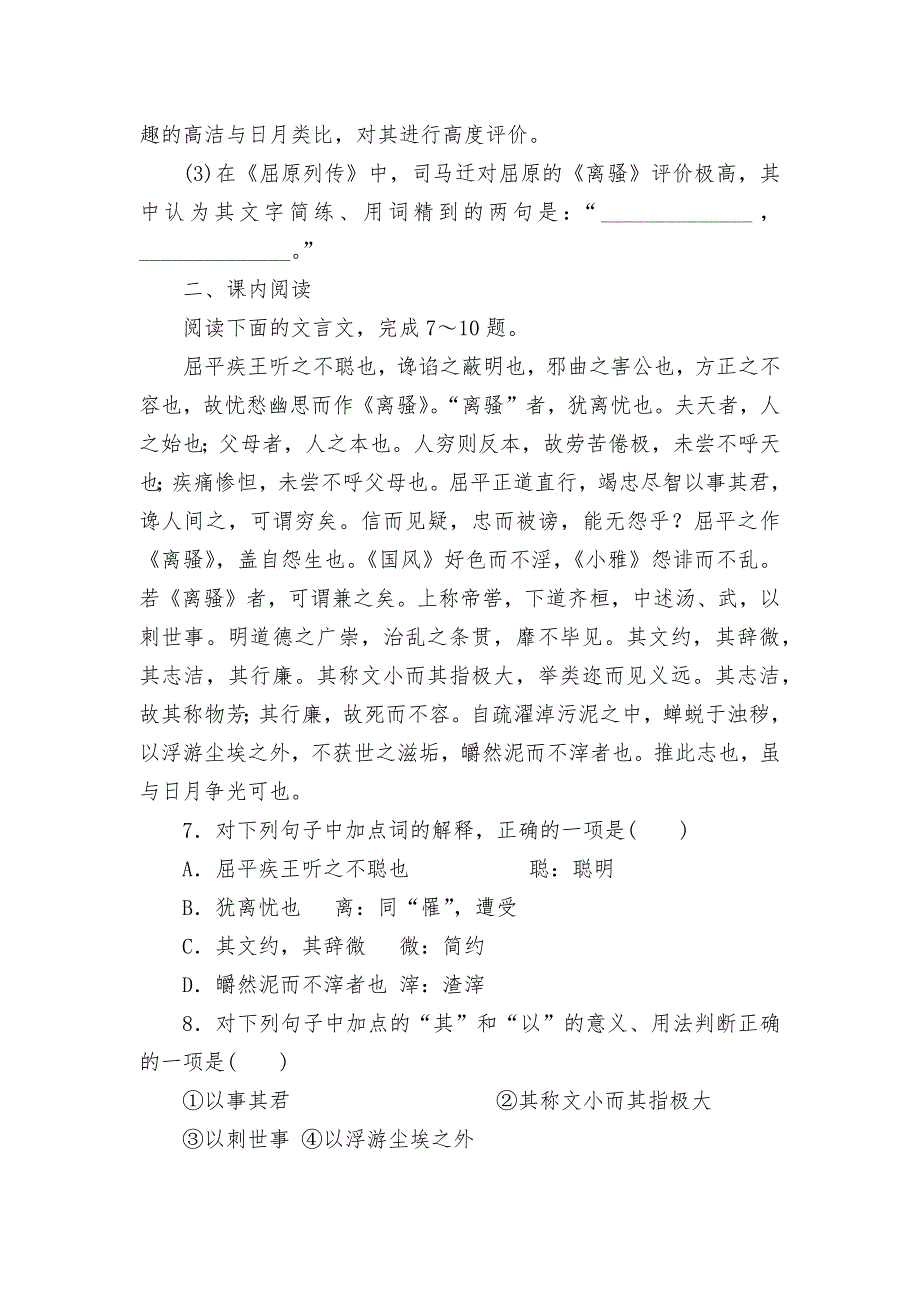 趣的高洁与日月类比，对其进行高度评价。
(3)在《屈原列传》中，司马迁对屈原的《离骚》评价极高，其
中认为其文字简练、用词精到的两句是：“______________，
______________。”
二、课内阅读
阅读下面的文言文，完成7～10题。
屈平疾王听之不聪也，谗谄之蔽明也，邪曲之害公也，方正之不
容也，故忧愁幽思而作《离骚》。“离骚”者，犹离忧也。夫天者，人
之始也；父母者，人之本也。人穷则反本，故劳苦倦极，未尝不呼天
也；疾痛惨怛，未尝不呼父母也。屈平正道直行，竭忠尽智以事其君，
谗人间之，可谓穷矣。信而见疑，忠而被谤，能无怨乎？屈平之作
《离骚》，盖自怨生也。《国风》好色而不淫，《小雅》怨诽而不乱。
若《离骚》者，可谓兼之矣。上称帝喾，下道齐桓，中述汤、武，以
刺世事。明道德之广崇，治乱之条贯，靡不毕见。其文约，其辞微，
其志洁，其行廉。其称文小而其指极大，举类迩而见义远。其志洁，
故其称物芳；其行廉，故死而不容。自疏濯淖污泥之中，蝉蜕于浊秽，
以浮游尘埃之外，不获世之滋垢，皭然泥而不滓者也。推此志也，虽
与日月争光可也。
7．对下列句子中加点词的解释，正确的一项是(　　)
A．屈平疾王听之不聪也　聪：聪明
B．犹离忧也　离：同“罹”，遭受
C．其文约，其辞微　微：简约
D．皭然泥而不滓者也 滓：渣滓
8．对下列句子中加点的“其”和“以”的意义、用法判断正确
的一项是(　　)
①以事其君　②其称文小而其指极大
③以刺世事 ④以浮游尘埃之外